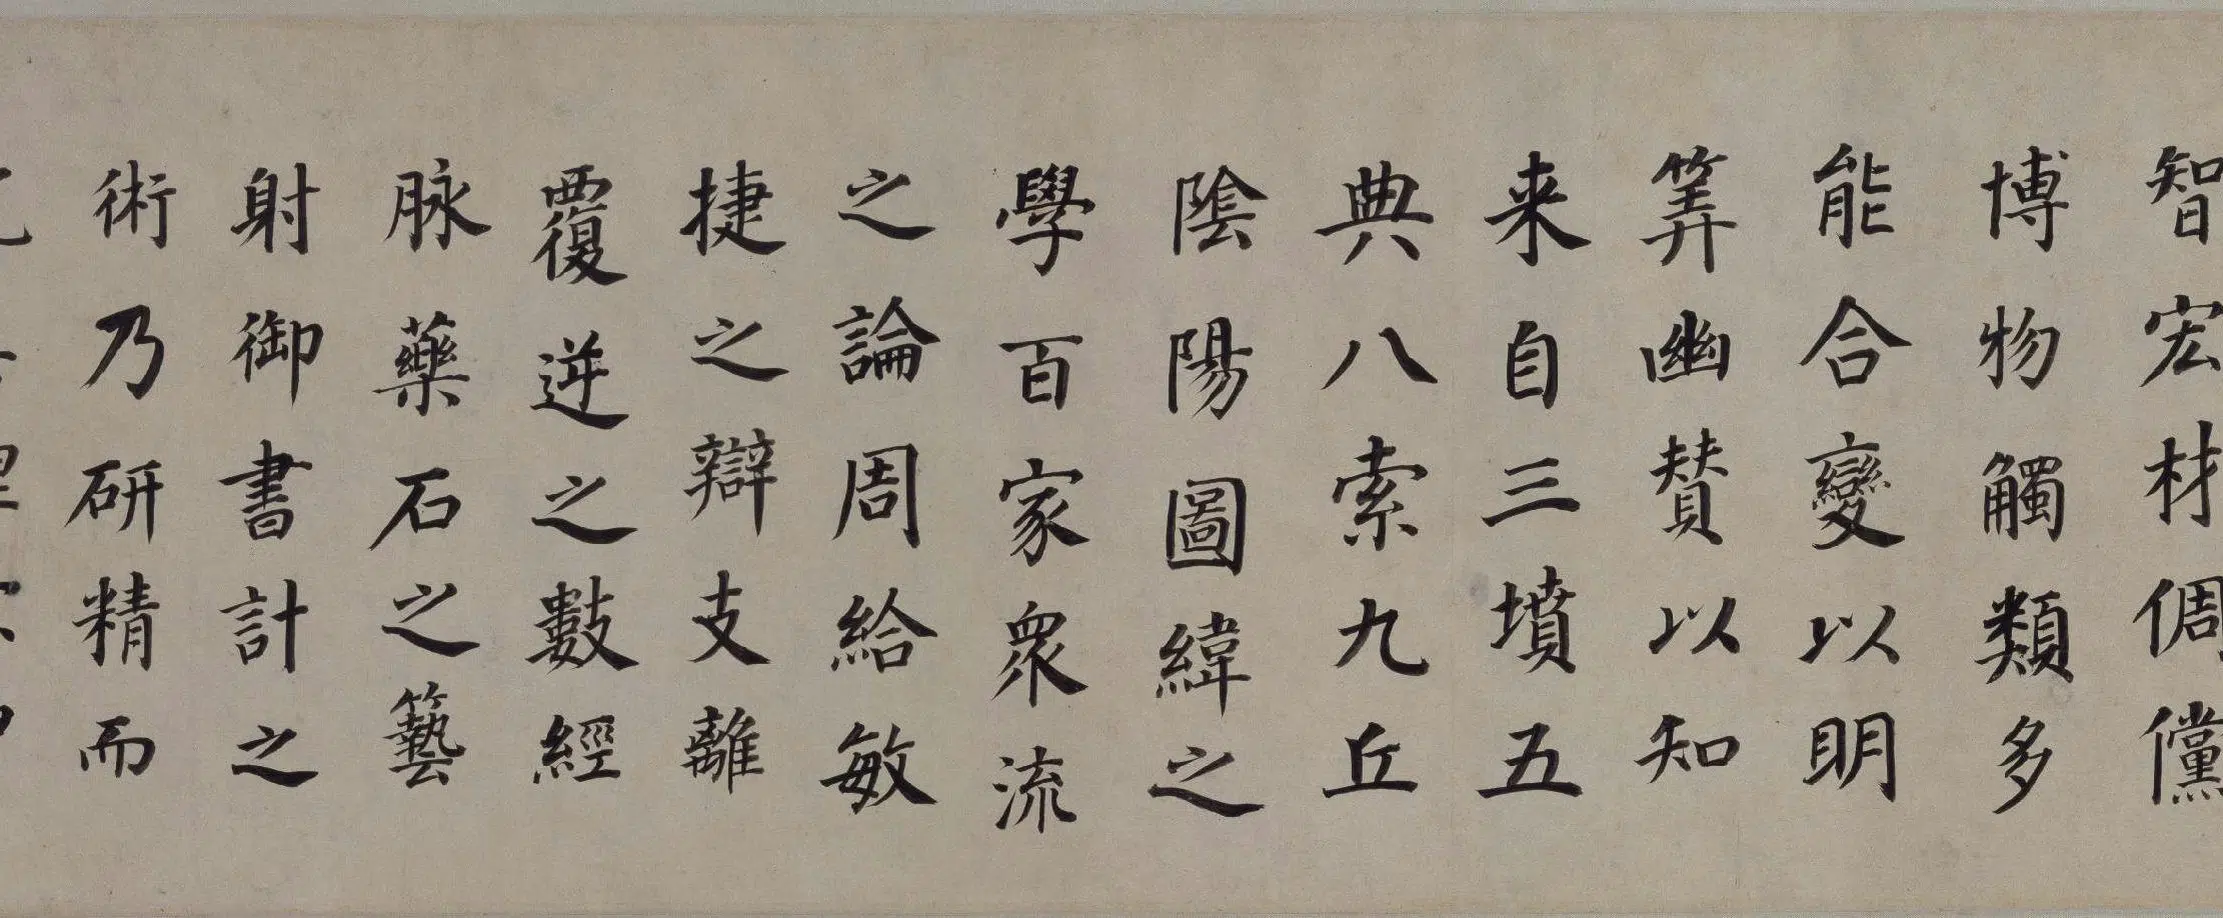 智宏材倜儻
博物觸類多
能合變以明
筭幽賛以知
来自三墳五
典八索九丘
陰陽圖緯之
學百家衆流
之論周給敏
捷之辯支離
覆逆之數經
脉藥石之藝
射御書計之
術乃研精而